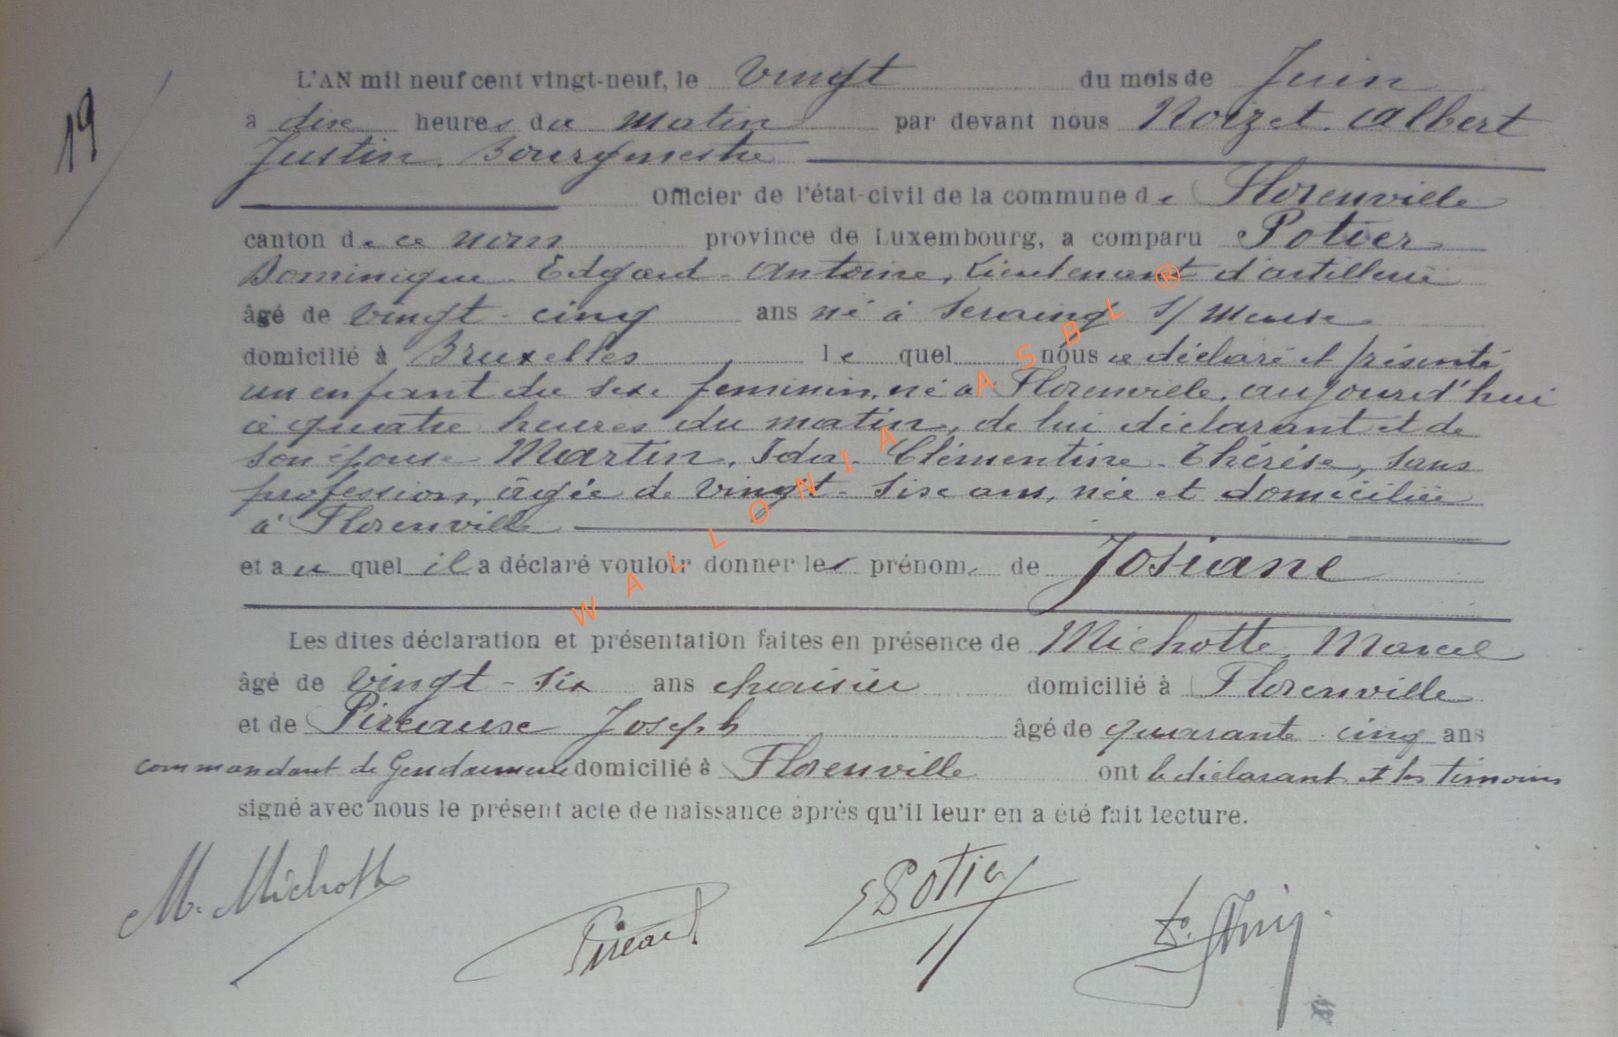 19
L'AN mil neuf cent vingt-neuf, le vingt du mois de Juin
à dix heures du matin par devant nous Noizet. Albert
Justin. Bourgmestre
Officier de l'état-civil de la commune de Florenville
canton de ce nom province de Luxembourg, a comparu Potier
Dominique Edgard Antoine, Lieutenant d'artillerie
âgé de vingt-cinq ans né à Seraing s/Meuse
domicilié à Bruxelles, le quel nous a déclaré et présenté
un enfant du sexe feminin, né à Florenville, aujourd'hui
à quatre heures du matin, de lui déclarant et de
son épouse Martin, Ida Clémentine Thérèse, sans
profession, âgée de vingt-six ans, née et domiciliée
à Florenville
et au quel il a déclaré vouloir donner les prénom de Josiane
Les dites déclaration et présentation faites en présence de Michotte, Marcel
âgé de vingt-six ans domicilié à Florenville
et de Joseph âgé de quarante cinq ans
commandant de Gendarmerie domicilié à Florenville ont le déclarant et les témoins
signé avec nous le présent acte de naissance après qu'il leur en a été fait lecture.
M. Michotte
Pireau
EPotier
WALLONIA ASBL ®